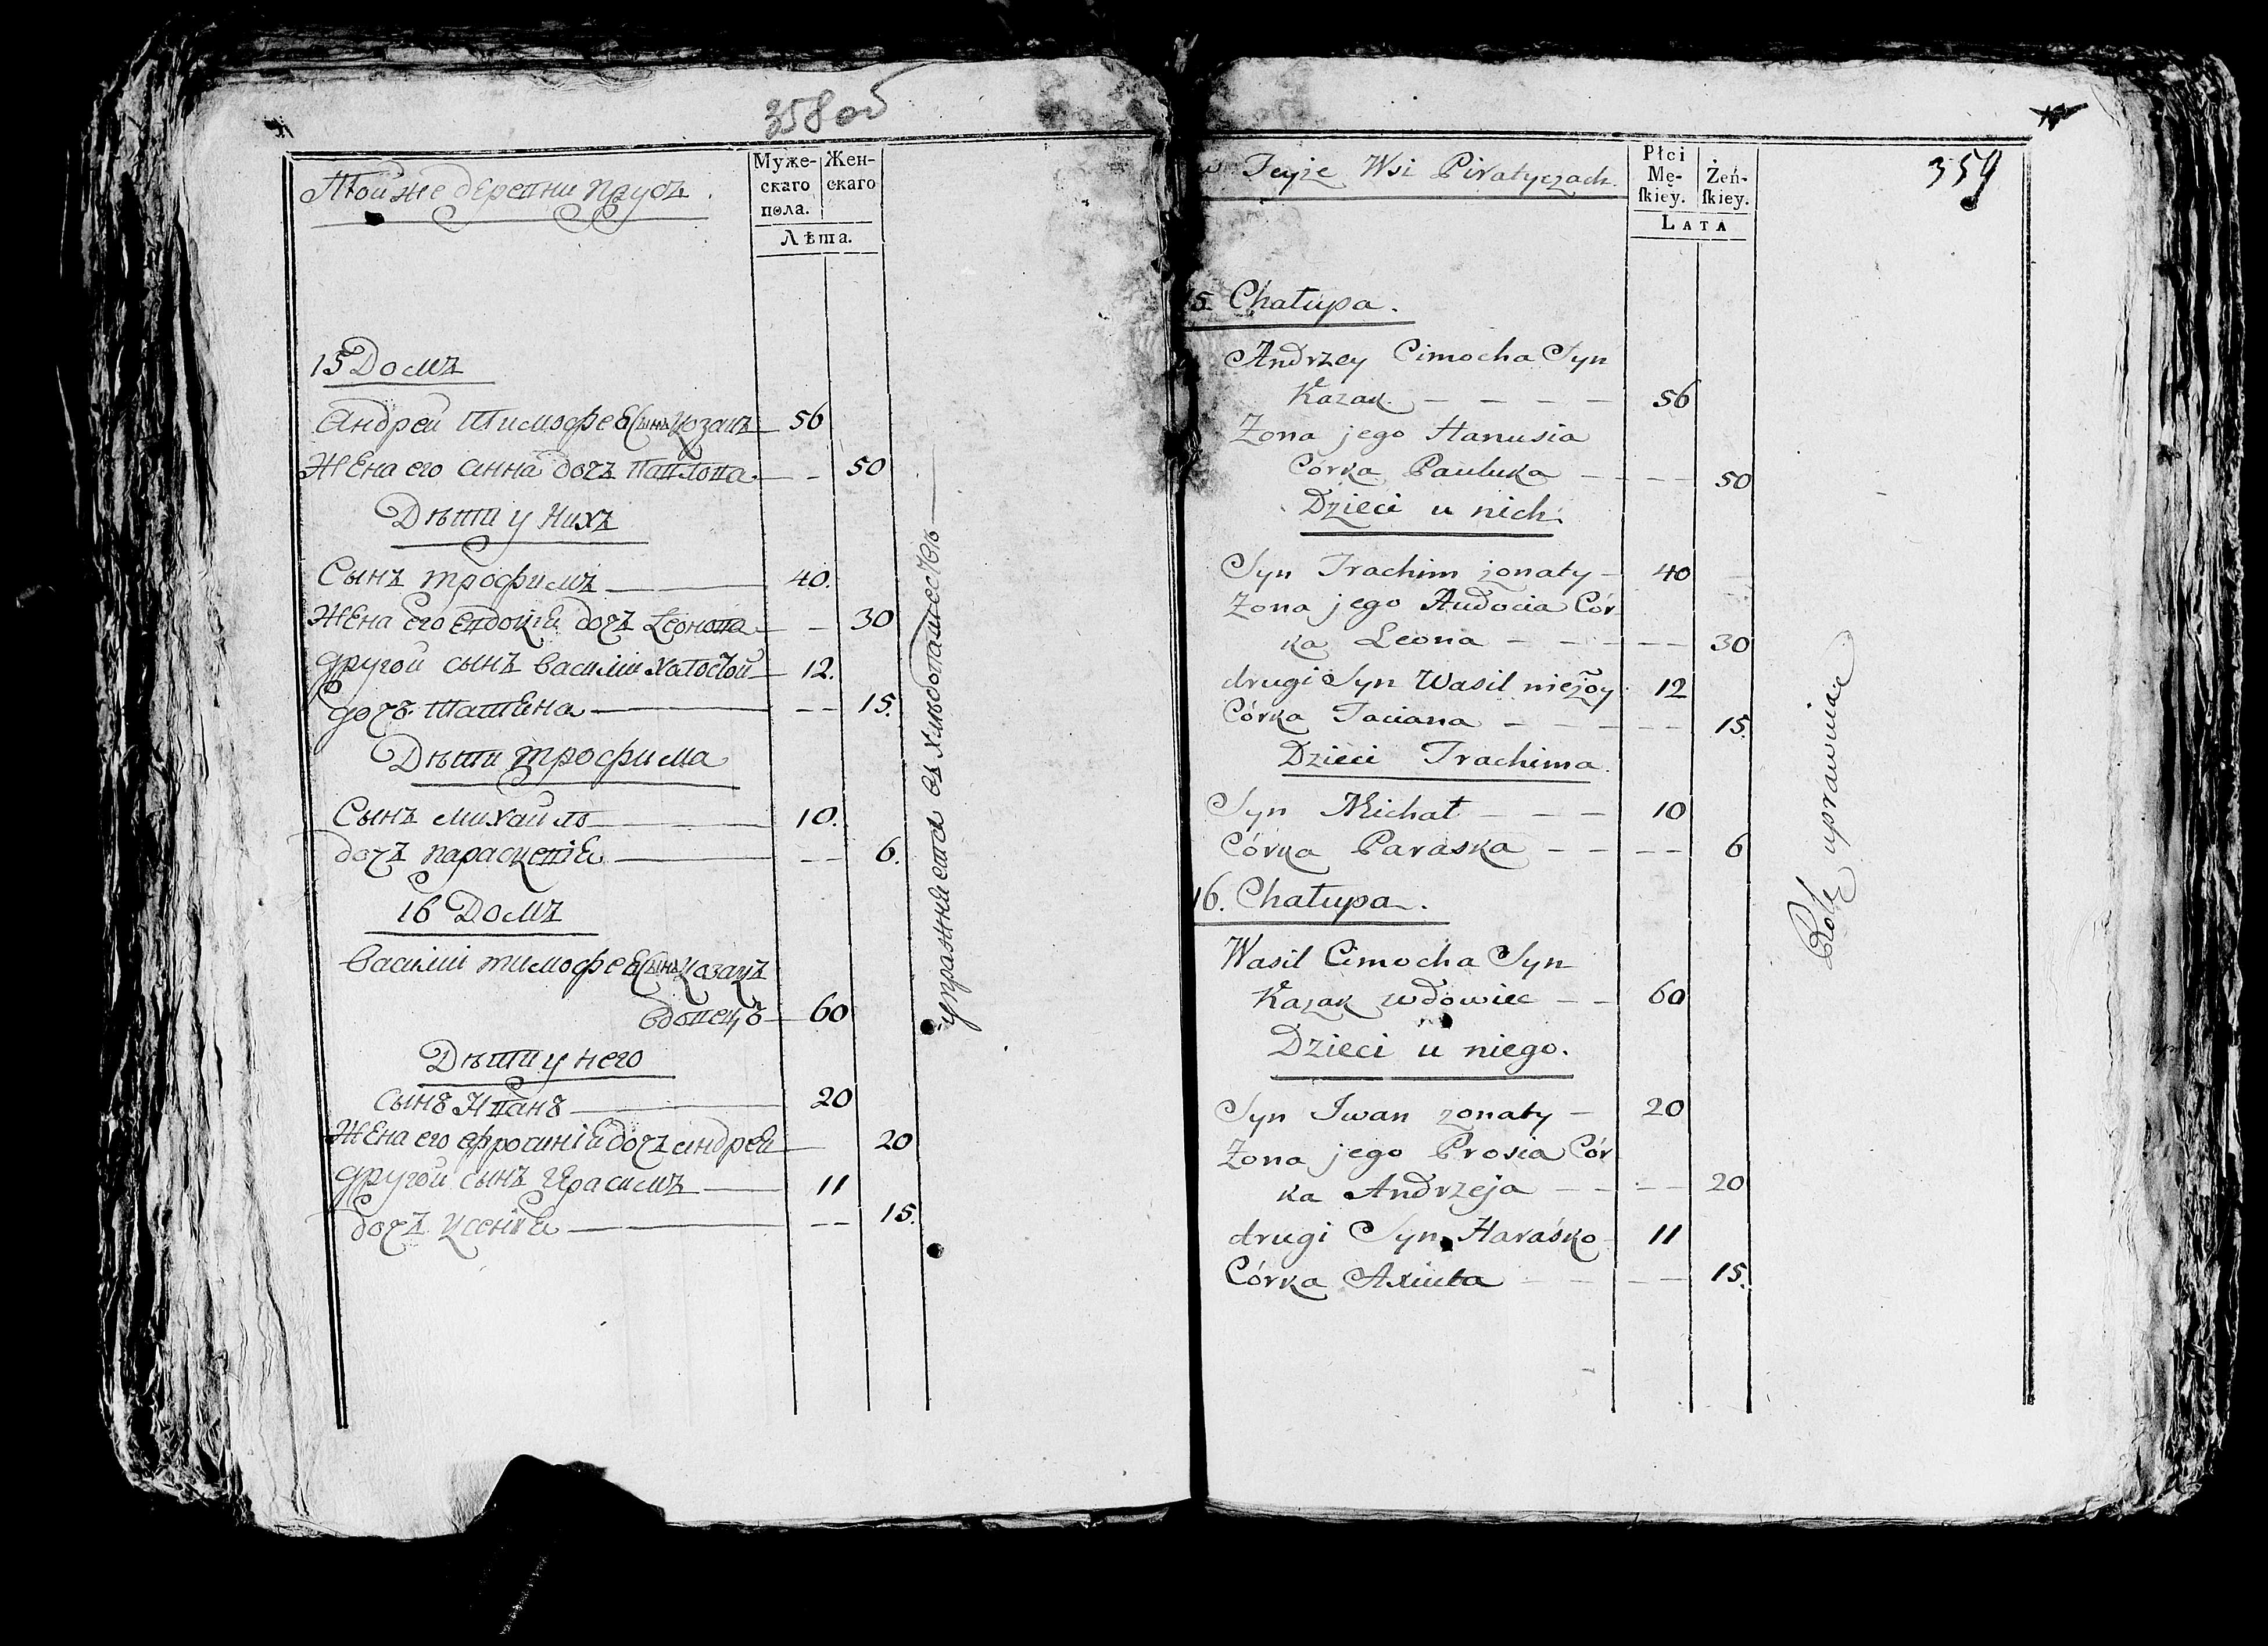 358 об
Муже-
скаго
пола.
Жен-
скаго
Лѣта.
Той же деревни
15 Домъ
Андрей Тимофеев Сынъ Козакъ 56
Жена его Анна дочъ Павлова — — 50
Дѣти у нихъ
Сынъ трофимъ — 40.
Жена его Евдокія дочъ Леонова — — 30
Другой сынъ Василій холостой — 12.
дочъ Татіяна — — — 15.
Дѣти трофима
Сынъ михайло — 10.
дочъ параскевія — — — 6.
16 Домъ
Василій тимофеев Сынъ Козакъ
вдовецъ — 60
Дѣти у него
сынъ Иванъ — 20
Жена его ефросинія дочъ андрея — 20
Другой сынъ Герасимъ — 11
дочъ Ксенія — — — 15.
упражняется въ хлѣбопашествѣ
359
w Teyże Wsi Piratyczach.
Płci
Mę-
skiey.
Żeń-
skiey.
LATA
15. Chałupa.
Andrzey Cimocha Syn
Kazak — — — — 56
Zona jego Hanusia
Córka Pauluka — — — 50
Dzieci u nich.
Syn Trachim zonaty — 40
Zona jego Audocia Cór
ka Leona — — — — 30
drugi Syn Wasil nieżoy 12
Córka Taciana — — — — 15.
Dzieci Trachima.
Syn Michał — — — 10
Córka Paraska — — — — 6
16. Chałupa.
Wasil Cimocha Syn
Kazak wdowiec — — 60
Dzieci u niego.
Syn Iwan zonaty — 20
Zona jego Prosia Cór
ka Andrzeja — — — 20
drugi Syn Haraśko 11
Córka Axiuta — — — — 15.
Rolę uprawuia